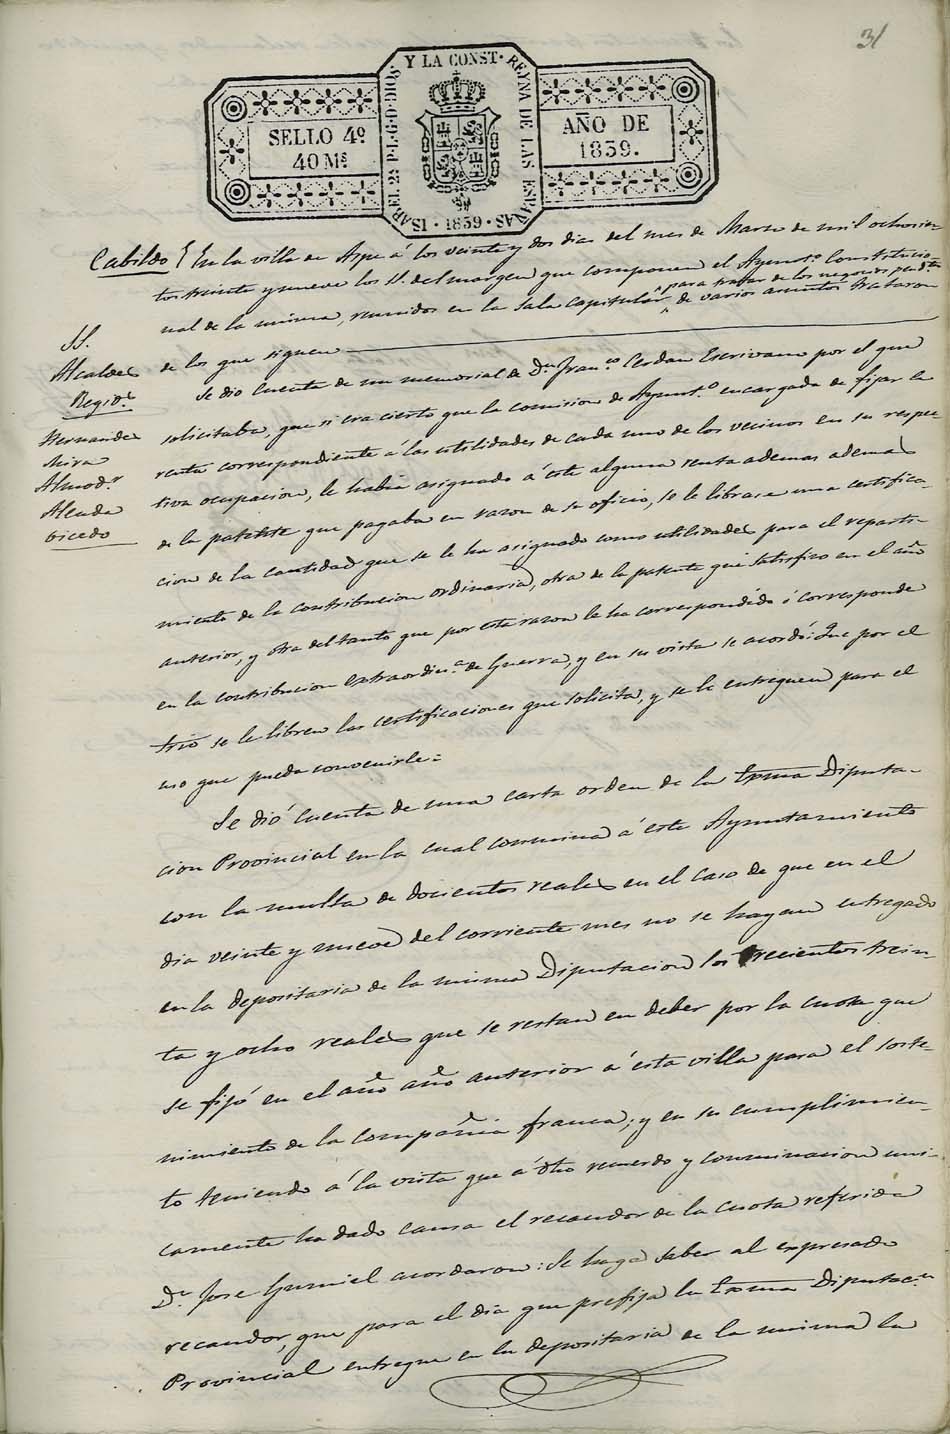 31
SELLO 4º
40 Mˢ
ISABEL 2ª P.L.G.D.DIOS. Y LA CONST. REYNA DE LAS ESPAÑAS · 1839 ·
AÑO DE
1839.
Cabildo En la villa de Aspe á los veinte y dos dias del mes de Marzo de mil ochocien-
tos treinta y nueve los SS. del margen que componen el Ayunt.º Constitucio-
nal de la misma, reunidos en la Sala Capitular para tratar de los negocios pend.tes de varios asuntos trataron
de los que siguen
SS.
Alcaldes
Regid.s
Hernandez
Mira
Almod.r
Alenda
Vicedo
Se dio cuenta de un memorial de D.n Fran.co Cerdan Escrivano por el que
solicitaba, que si era cierto que la comision de Ayunt.º encargada de fijar la
renta correspondiente á las utilidades de cada uno de los vecinos en su respec-
tiva ocupacion, le habia asignado á este alguna renta ademas ademas
de la patente que pagaba en razon de su oficio, se le librase una certifica-
cion de la cantidad que se le ha asignado como utilidades para el reparti-
miento de la contribucion ordinaria, otra de la patente que satisfizo en el año
anterior, y otra del tanto que por esta razon le ha correspondido ó corresponde
en la contribucion extraordin.a de Guerra, y en su vista se acordó: Que por el
Srio se le libren las certificaciones que solicita, y se le entreguen para el
uso que pueda convenirle=
Se dió cuenta de una carta orden de la Exma Diputa-
cion Provincial en la cual conmina á este Ayuntamiento
con la multa de docientos reales en el caso de que en el
dia veinte y nueve del corriente mes no se hayan entregado
en la depositaria de la misma Diputacion los trecientos trein-
ta y ocho reales que se restan en deber por la cuota que
se fijó en el año año anterior á esta villa para el soste-
nimiento de la compañia franca; y en su cumplimien-
to teniendo á la vista que á dho recuerdo y conminacion uni-
camente ha dado causa el recaudor de la cuota referida
D.n Jose Gumiel acordaron: Se haga saber al expresado
recaudor, que para el dia que prefija la Exma Diputac.on
Provincial entregue en la depositaria de la misma la